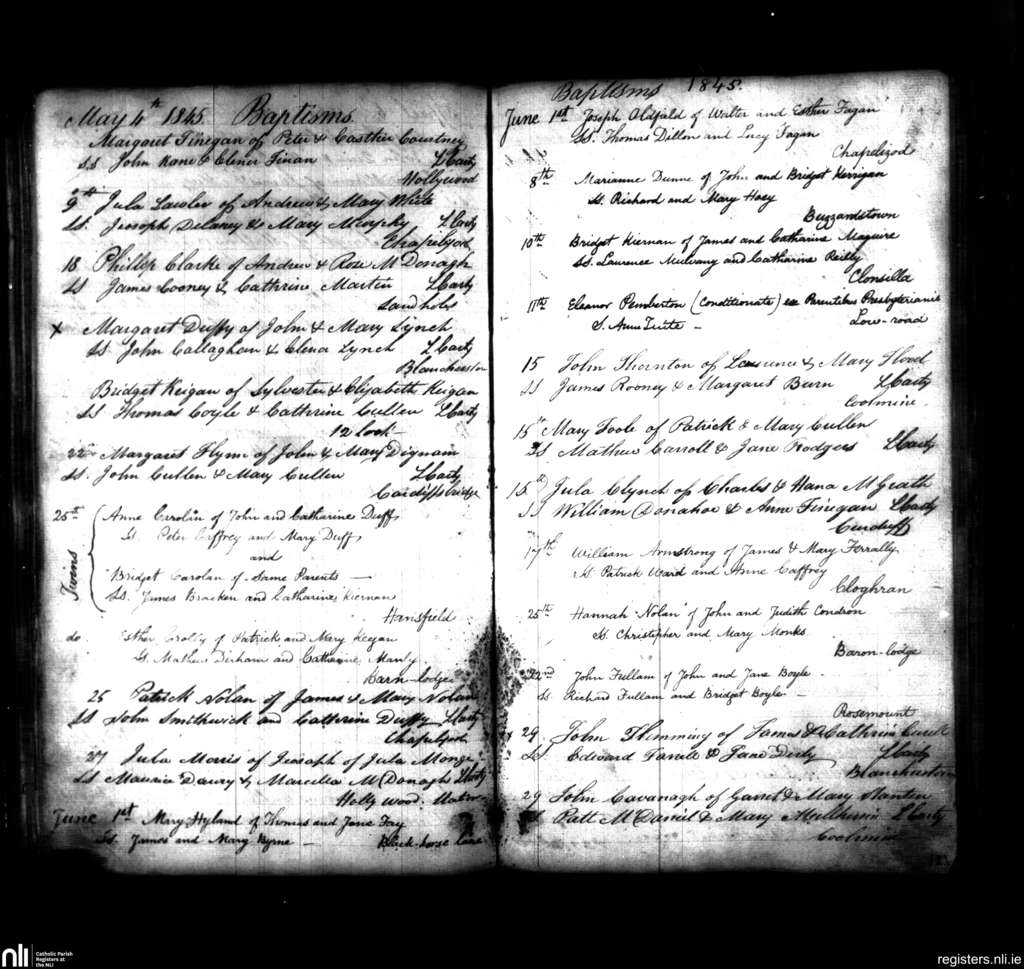 May 4th 1845 Baptisms.
Margaret Finegan of Peter & Courtney
SS John Kane & Elenor Finan LCarty
Hollywood
9th Jula Lawler of Andrew & Mary White
SS. Joseph Delaney & Mary Murphy LCarty
Chapelizod
18 Phillip Clarke of Andrew & Rose McDonagh
SS James Cooney & Cathrine Martin LCarty
Sandholes
x Margaret Duffy of John & Mary Lynch
SS. John Callaghan & Elena Lynch LCarty
Blanchestown
Bridget Keigan of Sylvester & Elizabeth Keigan
SS Thomas Coyle & Cathrine Cullen LCarty
12 Lock
22nd Margaret Flynn of John & Mary Dignam
SS. John Cullen & Mary Cullen LCarty
Cardiffsbridge
25th Anne Carolin of John and Catharine Duff
SS. Peter Caffrey and Mary Duff
and
Twins
Bridget Carolan of Same Parents —
SS. James Bracken and Catharine Kiernan
Hansfield
do. Esther Crolly of Patrick and Mary Keegan
SS. Mathew Derham and Catherine Manly
Barn-lodge
25 Patrick Nolan of James & Mary Nolan
SS John Smithwick and Cathrine Duffy LCarty
Chapelizod
27 Jula Morris of Joseph of Jula Monge
SS Maurice & Marcella McDonagh LCarty
Holly wood.
June 1st Mary Hyland of Thomas and Jane Fay
SS. James and Mary Byrne — Black-horse lane
Baptisms 1845.
June 1st Joseph Oldfald of Walter and Esther Fagan
SS. Thomas Dillon and Lucy Fagan
Chapelizod
8th Marianne Dunne of John and Bridget Kerrigan
SS. Richard and Mary Hoey
Buzzardstown
10th Bridget Kiernan of James and Catharine Maguire
SS. Laurence Mulvany and Catharine Reilly
Clonsilla
11th Eleanor Pemberton (Conditionate) ex Parentibus Presbyterianis
S. Anne Tuite —
Low-road
15 John Thornton of Laurence & Mary Flood
SS James Rooney & Margaret Burn LCarty
Coolmine.
15th Mary Toole of Patrick & Mary Cullen
SS Mathew Carroll & Jane Rodgers LCarty
15th Jula Clynch of Charles & Hana McGrath
SS William Donahoe & Anne Finegan LCarty
Curduff
17th William Armstrong of James & Mary Ferrally
SS. Patrick Ward and Anne Caffrey
Cloghran
25th Hannah Nolan of John and Judith Condron
SS. Christopher and Mary Monks
Baron-lodge
22nd John Fullam of John and Jane Boyle
SS. Richard Fullam and Bridget Boyle —
Rosemount
29 John Flemming of James & Cathrine
SS. Edward Farrell & Jane LCarty
Blanchestown
29 John Cavanagh of Garret & Mary Stanton
Patt McDaniel & Mary LCarty
Coolmine
nli Catholic Parish
Registers at
the NLI
registers.nli.ie